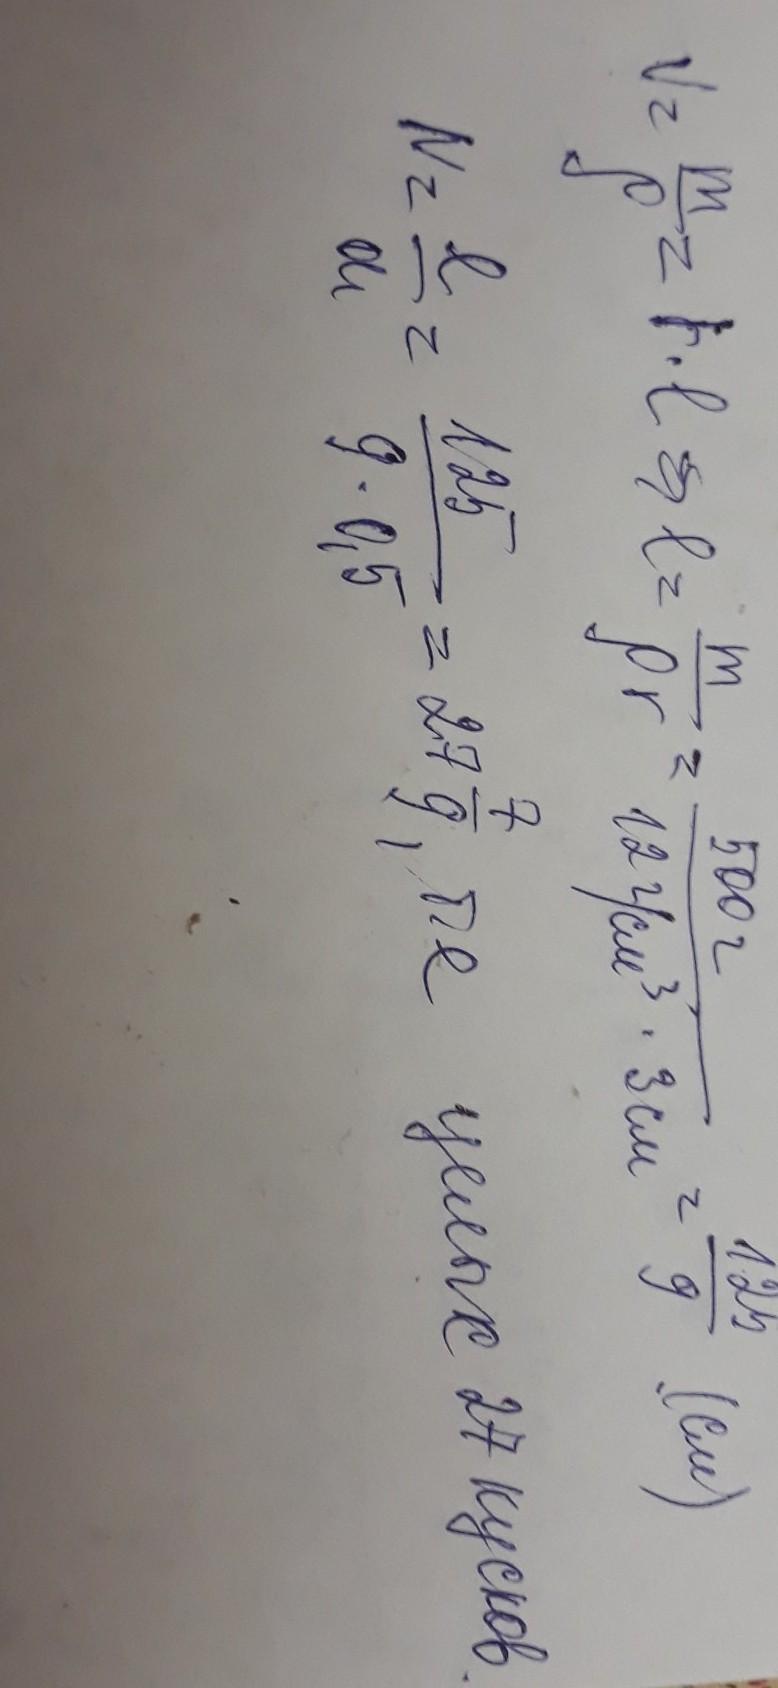 V = m/ρ = r·l ⇒ l = m/ρr = 500 г/12 г/см³ · 3 см = 125/9 (см)
N = l/a = 125/9·0,5 = 27 7/9, т.е целых 27 кусков.